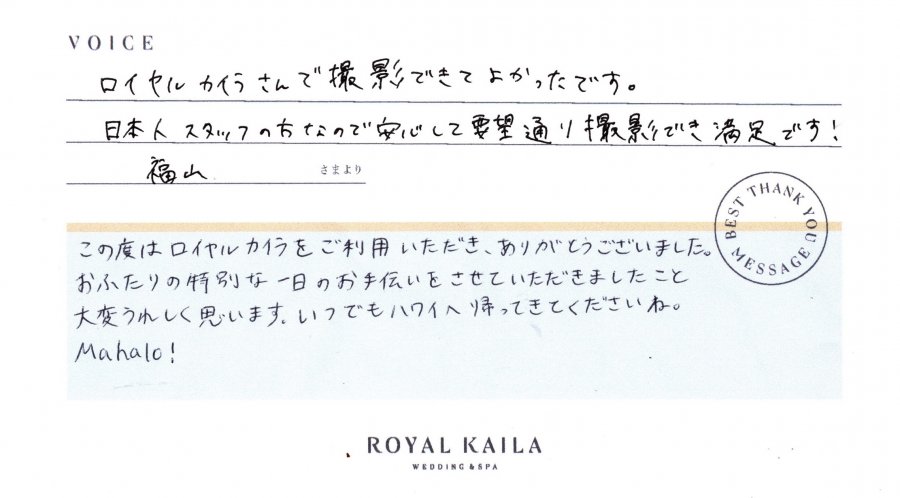 VOICE
ロイヤルカイラさんで撮影できてよかったです。
日本人スタッフの方なので安心して要望通り撮影でき満足です!
福山 さまより
BEST THANK YOU MESSAGE
この度はロイヤルカイラをご利用いただき、ありがとうございました。
おふたりの特別な一日のお手伝いをさせていただきましたこと
大変うれしく思います。いつでもハワイへ帰ってきてくださいね。
Mahalo!
ROYAL KAILA
WEDDING & SPA